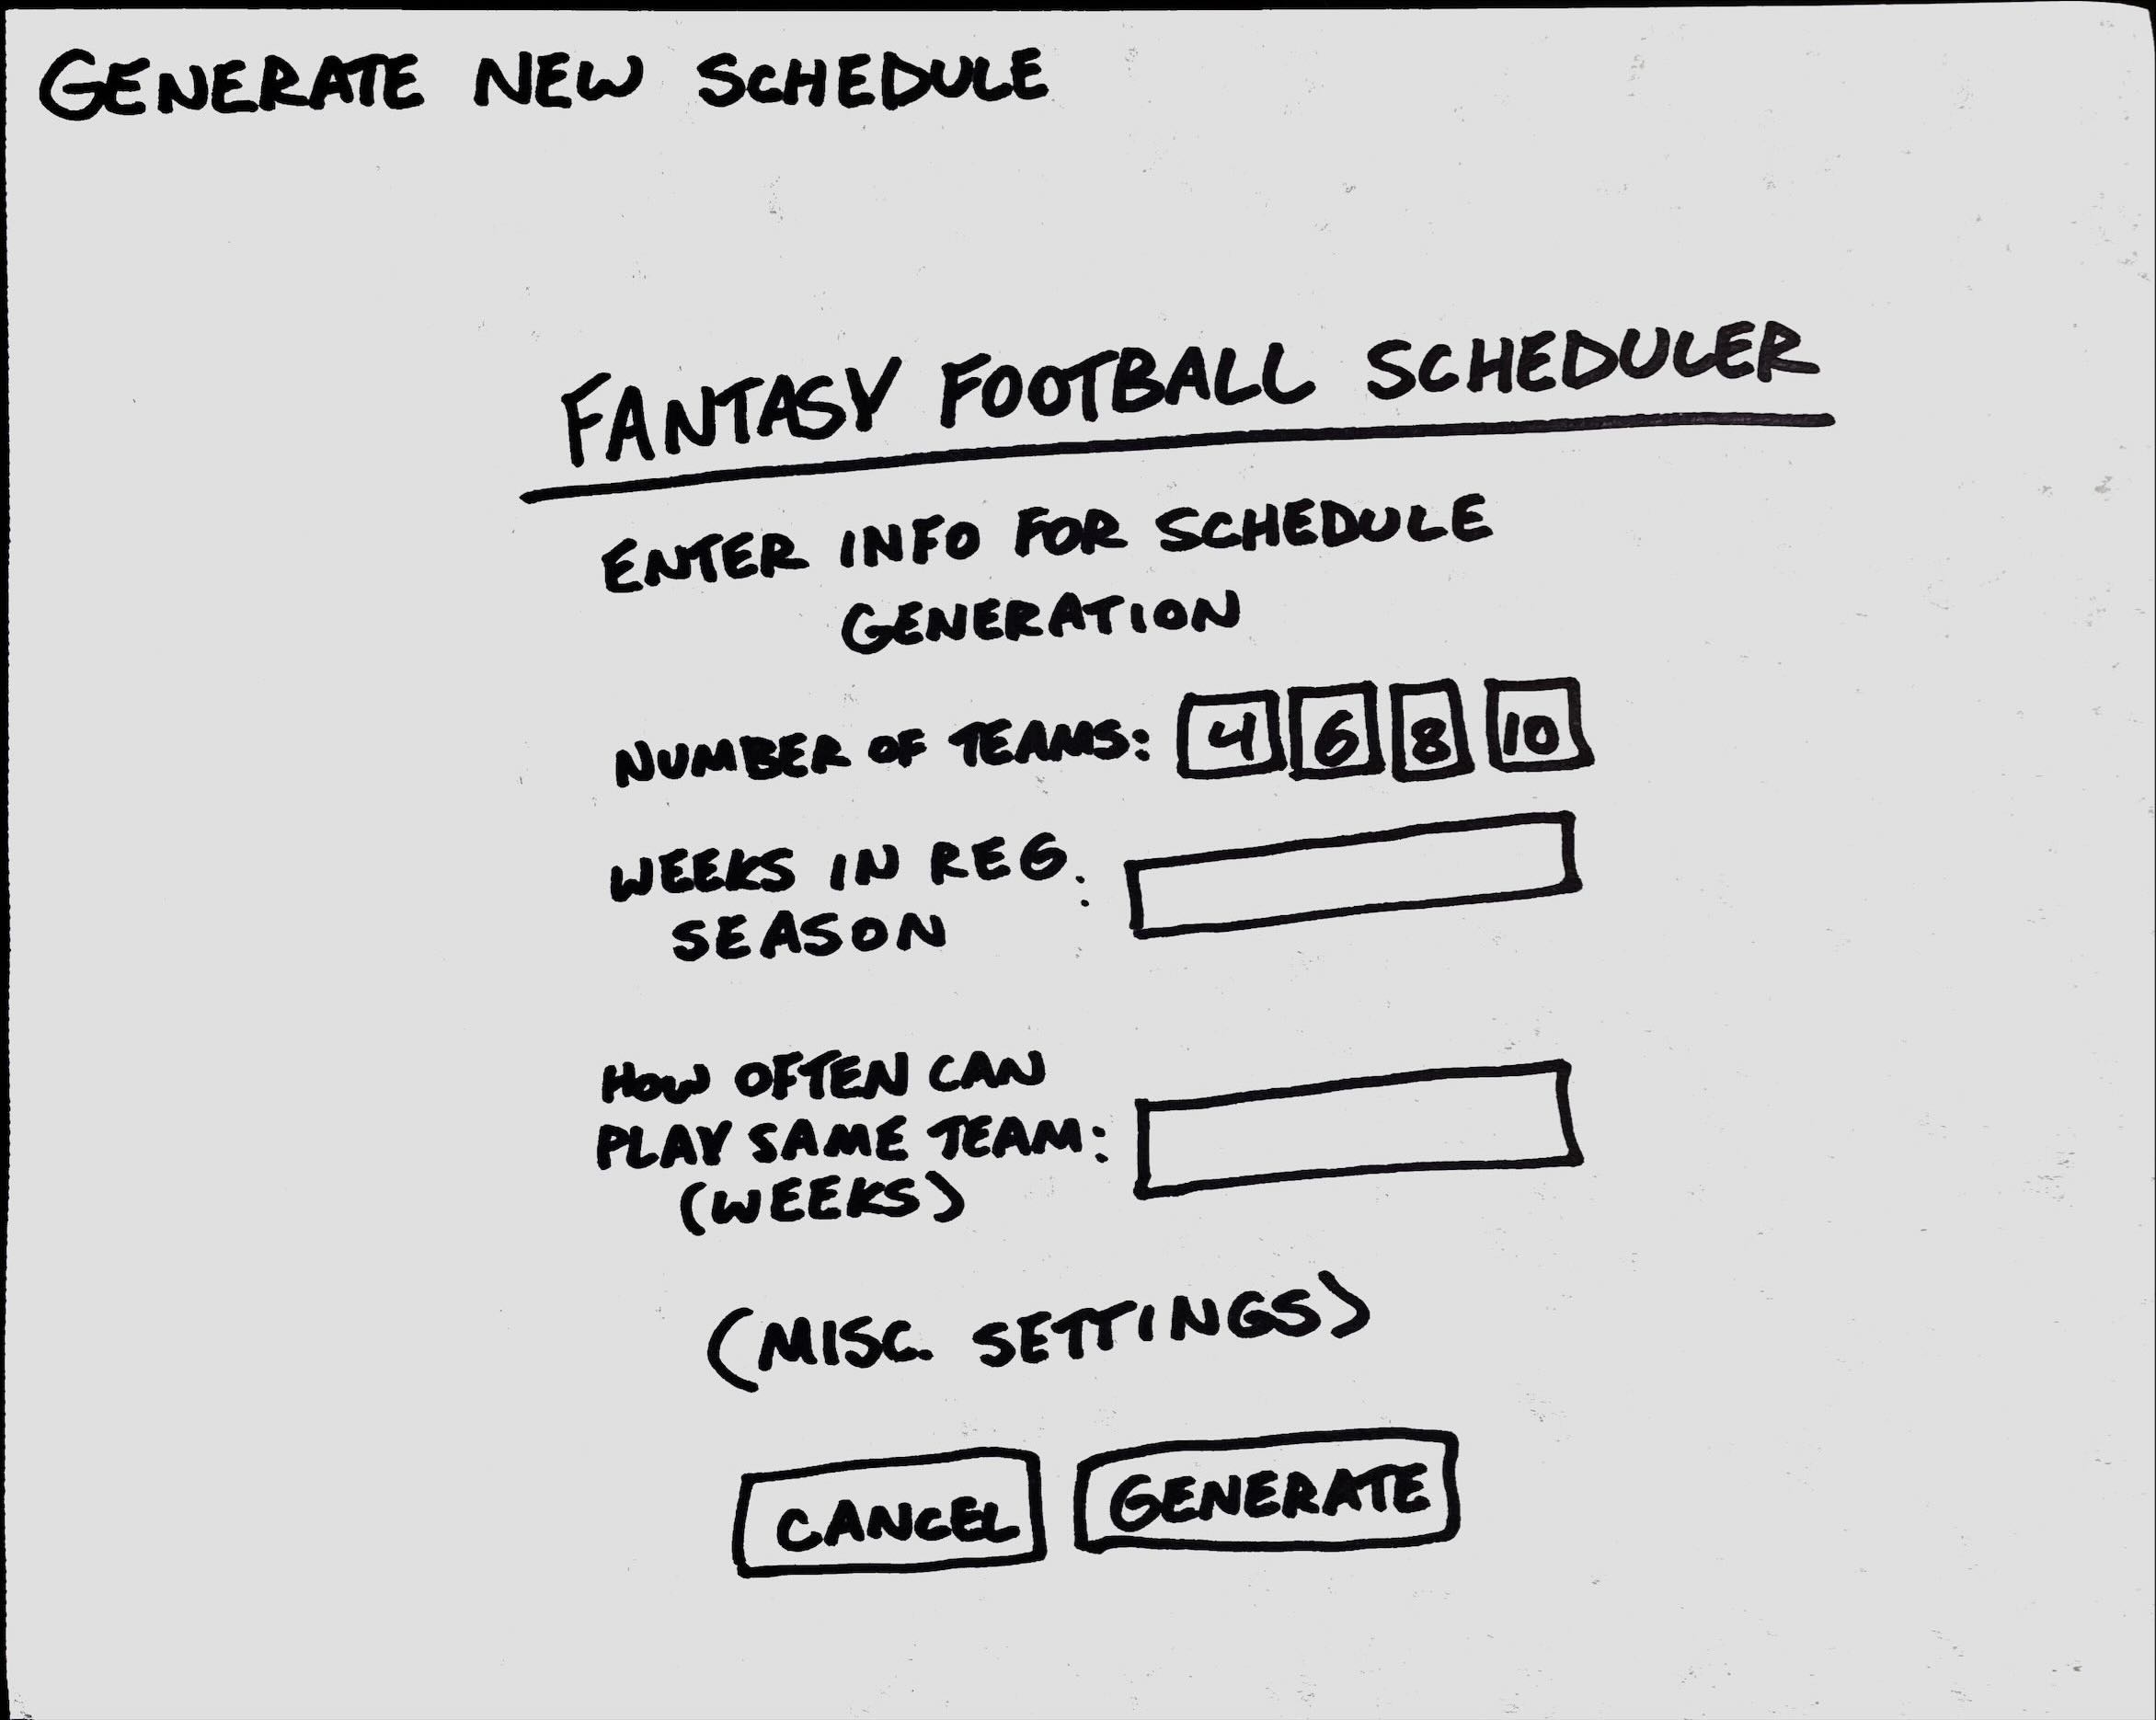 GENERATE NEW SCHEDULE
FANTASY FOOTBALL SCHEDULER
ENTER INFO FOR SCHEDULE
GENERATION
NUMBER OF TEAMS: 4 6 8 10
WEEKS IN REG. :
SEASON
HOW OFTEN CAN
PLAY SAME TEAM:
(WEEKS)
(MISC. SETTINGS)
CANCEL GENERATE